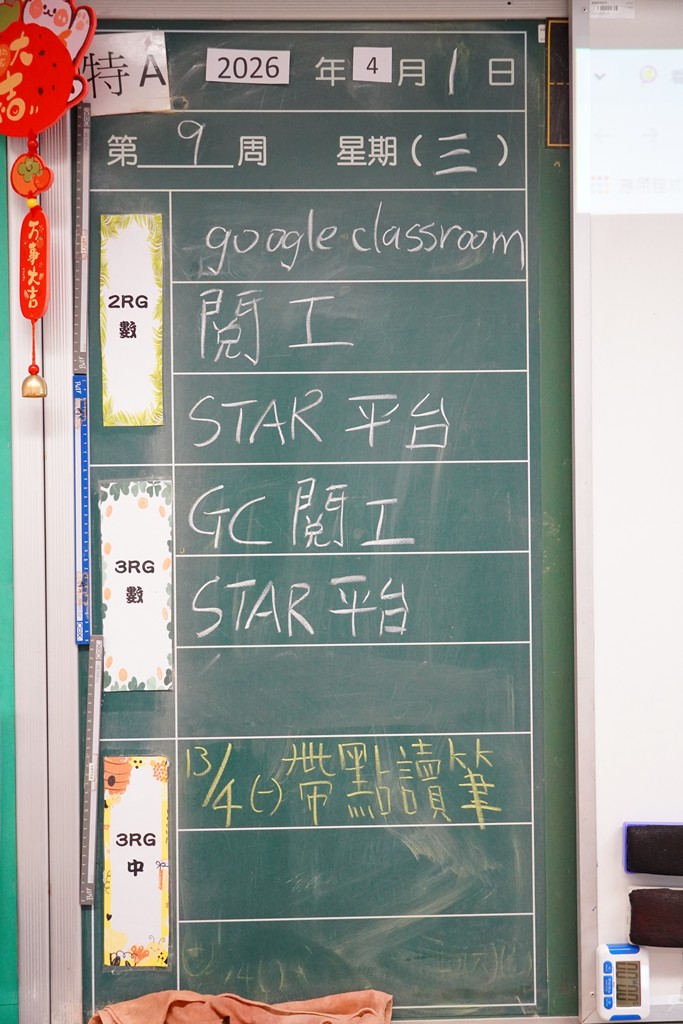 大吉
万事大吉
特A
2026 年 4 月 1 日
第 9 周 星期(三)
2RG 數
google classroom
閱工
STAR 平台
3RG 數
GC 閱工
STAR 平台
3RG 中
13/4(一) 帶點讀筆